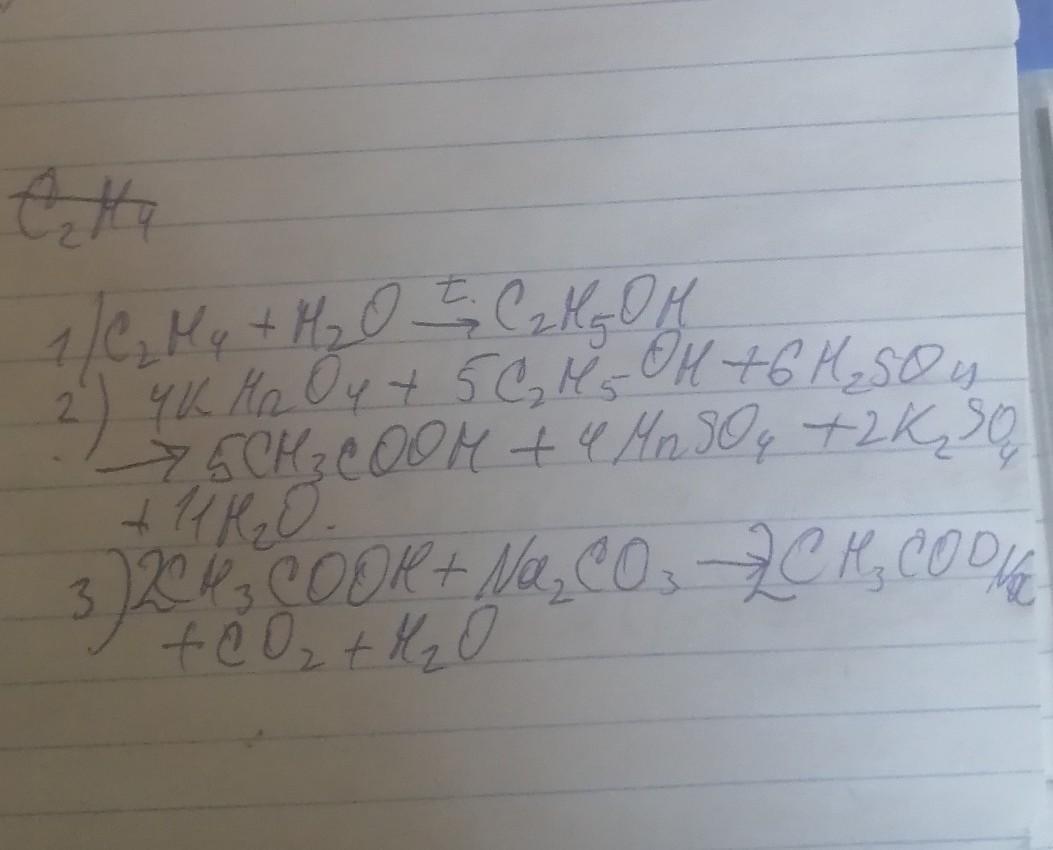 C₂H₄
1) C₂H₄ + H₂O →t. C₂H₅OH
2) 4KMnO₄ + 5C₂H₅OH + 6H₂SO₄
→ 5CH₃COOH + 4MnSO₄ + 2K₂SO₄
+ 11H₂O.
3) 2CH₃COOH + Na₂CO₃ → 2CH₃COONa
+ CO₂ + H₂O